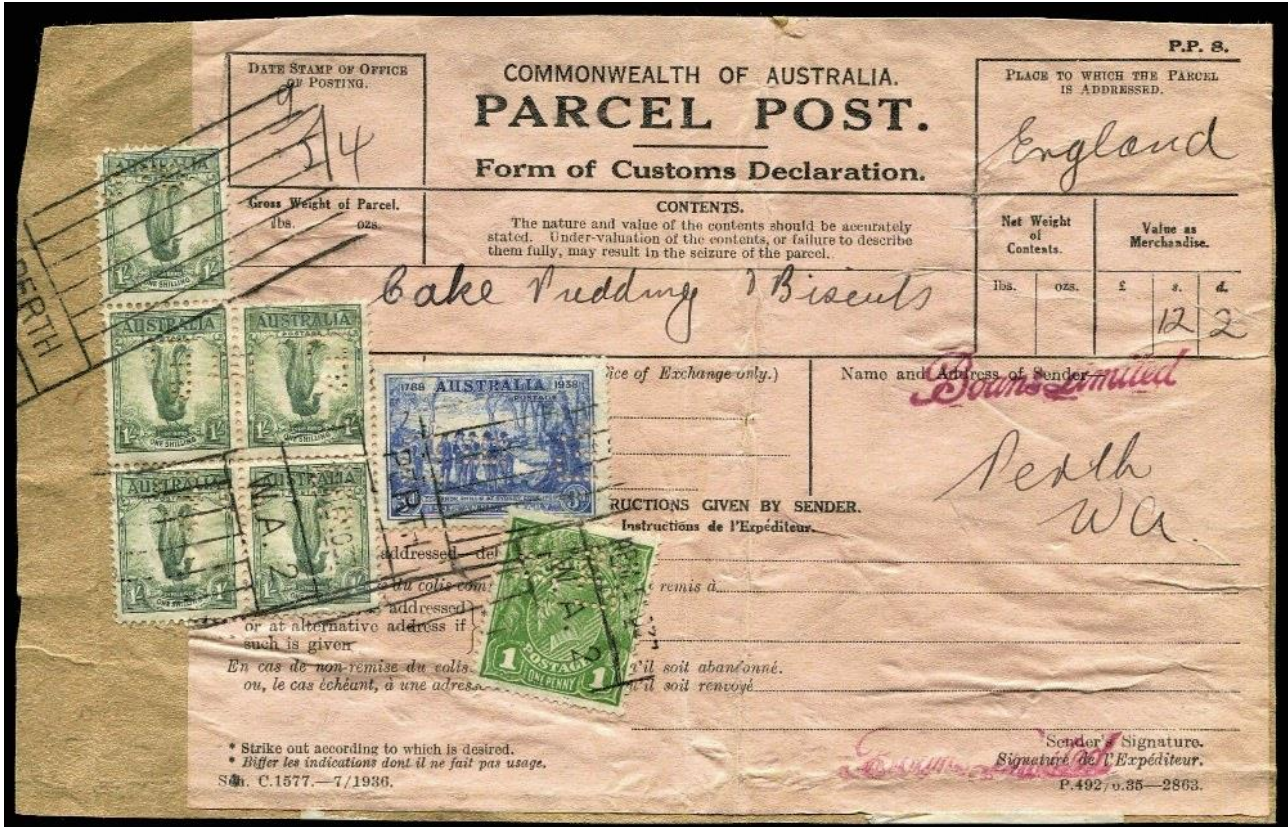 P.P. 8.
DATE STAMP OF OFFICE
OF POSTING.
COMMONWEALTH OF AUSTRALIA.
PARCEL POST.
Form of Customs Declaration.
PLACE TO WHICH THE PARCEL
IS ADDRESSED.
England
Gross Weight of Parcel.
lbs. ozs.
CONTENTS.
The nature and value of the contents should be accurately
stated. Under-valuation of the contents, or failure to describe
them fully, may result in the seizure of the parcel.
Net Weight
of
Contents.
lbs. ozs.
Value as
Merchandise.
£ s. d.
12 2
Cake Pudding & Biscuits
AUSTRALIA
1/- 1/-
ONE SHILLING
PERTH
AUSTRALIA
1/- 1/-
ONE SHILLING
AUSTRALIA
1/- 1/-
ONE SHILLING
AUSTRALIA
1/-
ONE SHILLING
AUSTRALIA
1/-
W.A. 2
1788 AUSTRALIA 1938
POSTAGE
ice of Exchange only.)
Name and Address of Sender
Limited
Perth
WA.
RUCTIONS GIVEN BY SENDER.
Instructions de l'Expéditeur.
addressed—del
du colis com
remis à
addressed
or at alternative address if
such is given
En cas de non-remise du colis.
u'il soit abandonné.
ou, le cas échéant, à une adress
u'il soit renvoyé
W.A. 2
1 POSTAGE 1
ONE PENNY
* Strike out according to which is desired.
* Biffer les indications dont il ne fait pas usage.
Sch. C.1577.—7/1936.
Sender's Signature.
Signature de l'Expéditeur.
P.492/6.35—2863.